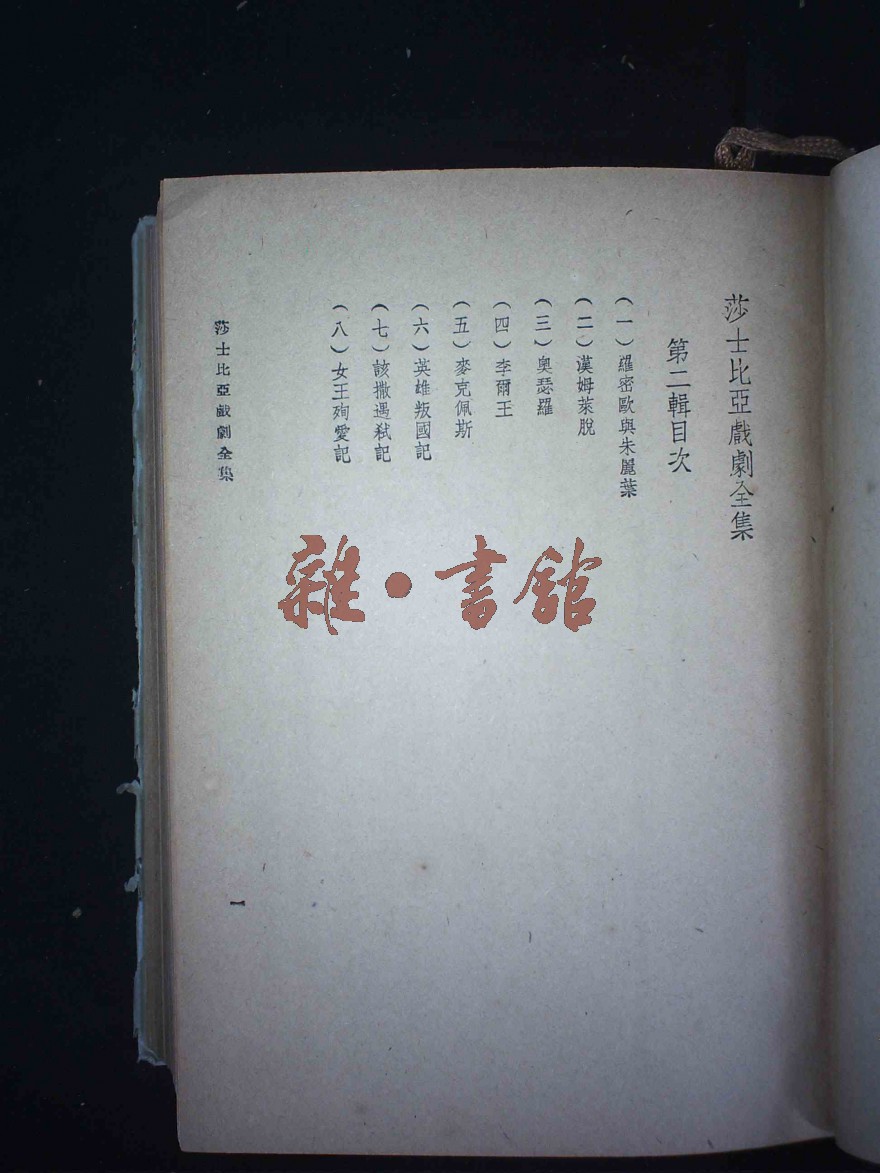 莎士比亞戲劇全集
第二輯目次
(一)羅密歐與朱麗葉
(二)漢姆萊脫
(三)奧瑟羅
(四)李爾王
(五)麥克佩斯
(六)英雄叛國記
(七)該撒遇弒記
(八)女王殉愛記
莎士比亞戲劇全集
一
雜·書館